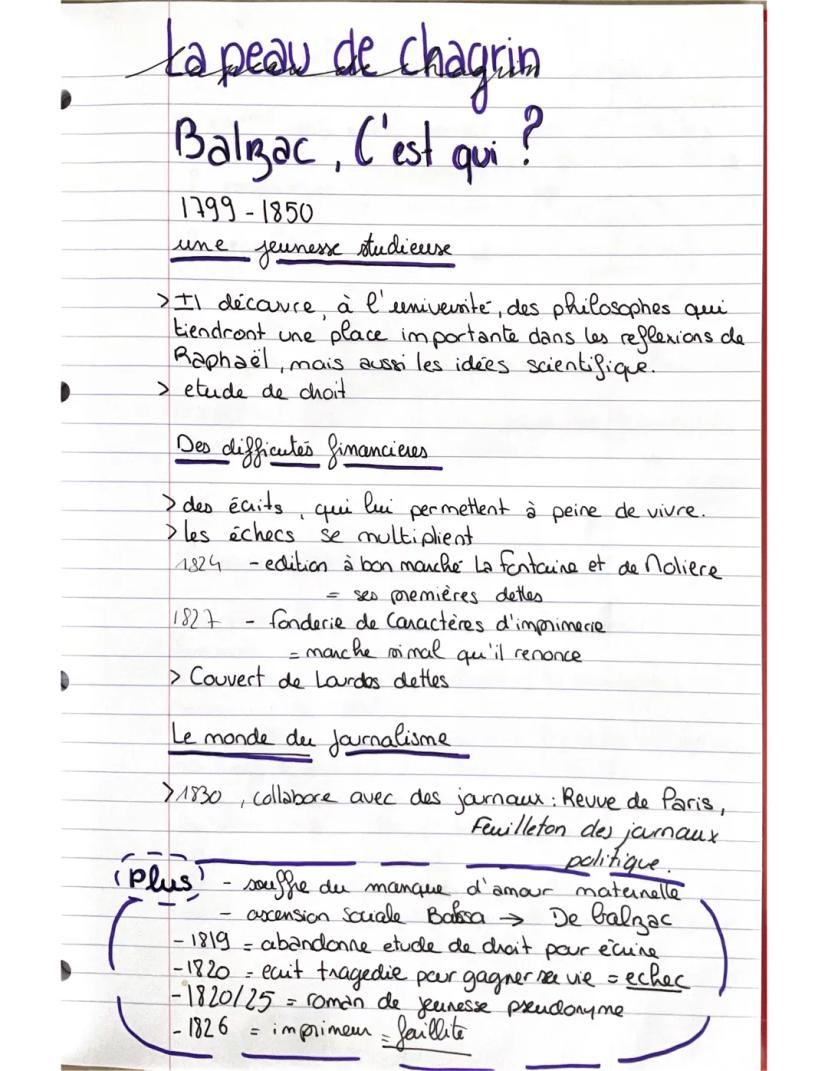 La peau de chagrin
Balzac, C'est qui ?
1799 - 1850
une jeunesse studieuse
> Il découvre, à l'université, des philosophes qui
tiendront une place importante dans les reflexions de
Raphaël, mais aussi les idées scientifique.
> etude de droit
Des difficutés financieres
> des écrits, qui lui permettent à peine de vivre.
> les échecs se multiplient
1824 - edition à bon marche La fontaine et de Moliere
= ses premières dettes
1827 - fonderie de Caractères d'imprimerie
= marche si mal qu'il renonce
> Couvert de Lourdes dettes
Le monde du journalisme
> 1830, collabore avec des journaux : Revue de Paris,
Feuilleton des journaux
politique.
(Plus) - souffre du manque d'amour maternelle
- ascension sociale Balssa → De balzac
- 1819 = abandonne etude de droit pour écrire
- 1820 = ecrit tragedie pour gagner sa vie = echec
- 1820/25 = roman de jeunesse pseudonyme
- 1826 = imprimeur = faillite